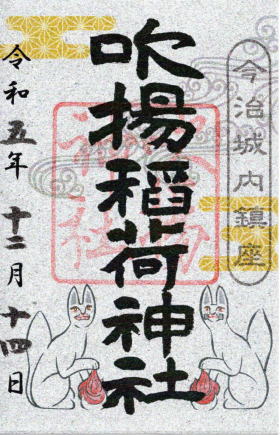 今治城内鎮座
吹揚稲荷神社
令和五年十二月十四日